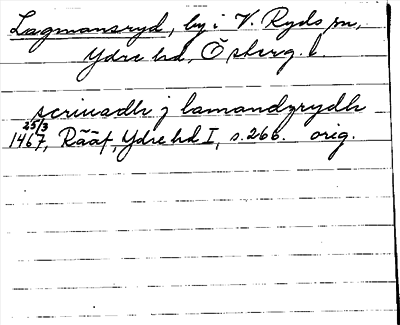 Lagmansryd, by i V. Ryds sn,
Ydre hd, Ög. l.
scriuadh j lamandzrydh
25/3
1467, Rääf, Ydre hd I, s. 266. orig.